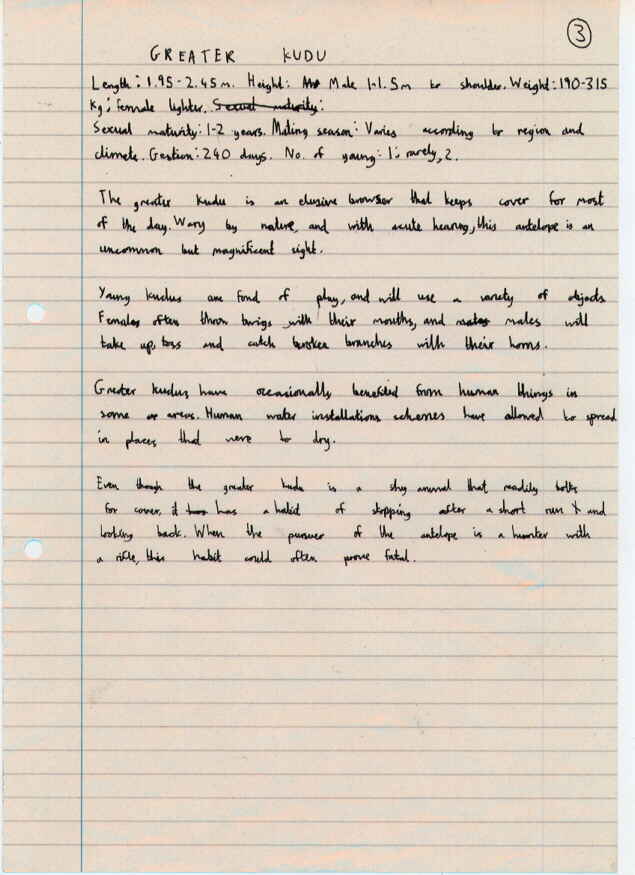 3
GREATER KUDU
Length: 1.95-2.45m. Height: Male 1-1.5m to shoulder. Weight: 190-315
kg; female lighter. Sexual maturity:
Sexual maturity: 1-2 years. Mating season: Varies according to region and
climate. Gestion: 240 days. No. of young: 1; rarely, 2.
The greater kudu is an elusive browser that keeps cover for most
of the day. Wary by nature, and with acute hearing, this antelope is an
uncommon but magnificent sight.
Young kudus are fond of play, and will use a variety of objects.
Females often throw twigs with their mouths, and males will
take up, toss and catch broken branches with their horns.
Greater kudus have occasionally benefited from human things in
some areas. Human water installations schemes have allowed to spread
in places that were to dry.
Even though the greater kudu is a shy animal that readily bolts
for cover, it has a habit of stopping after a short run and
looking back. When the pursuer of the antelope is a hunter with
a rifle, this habit could often prove fatal.